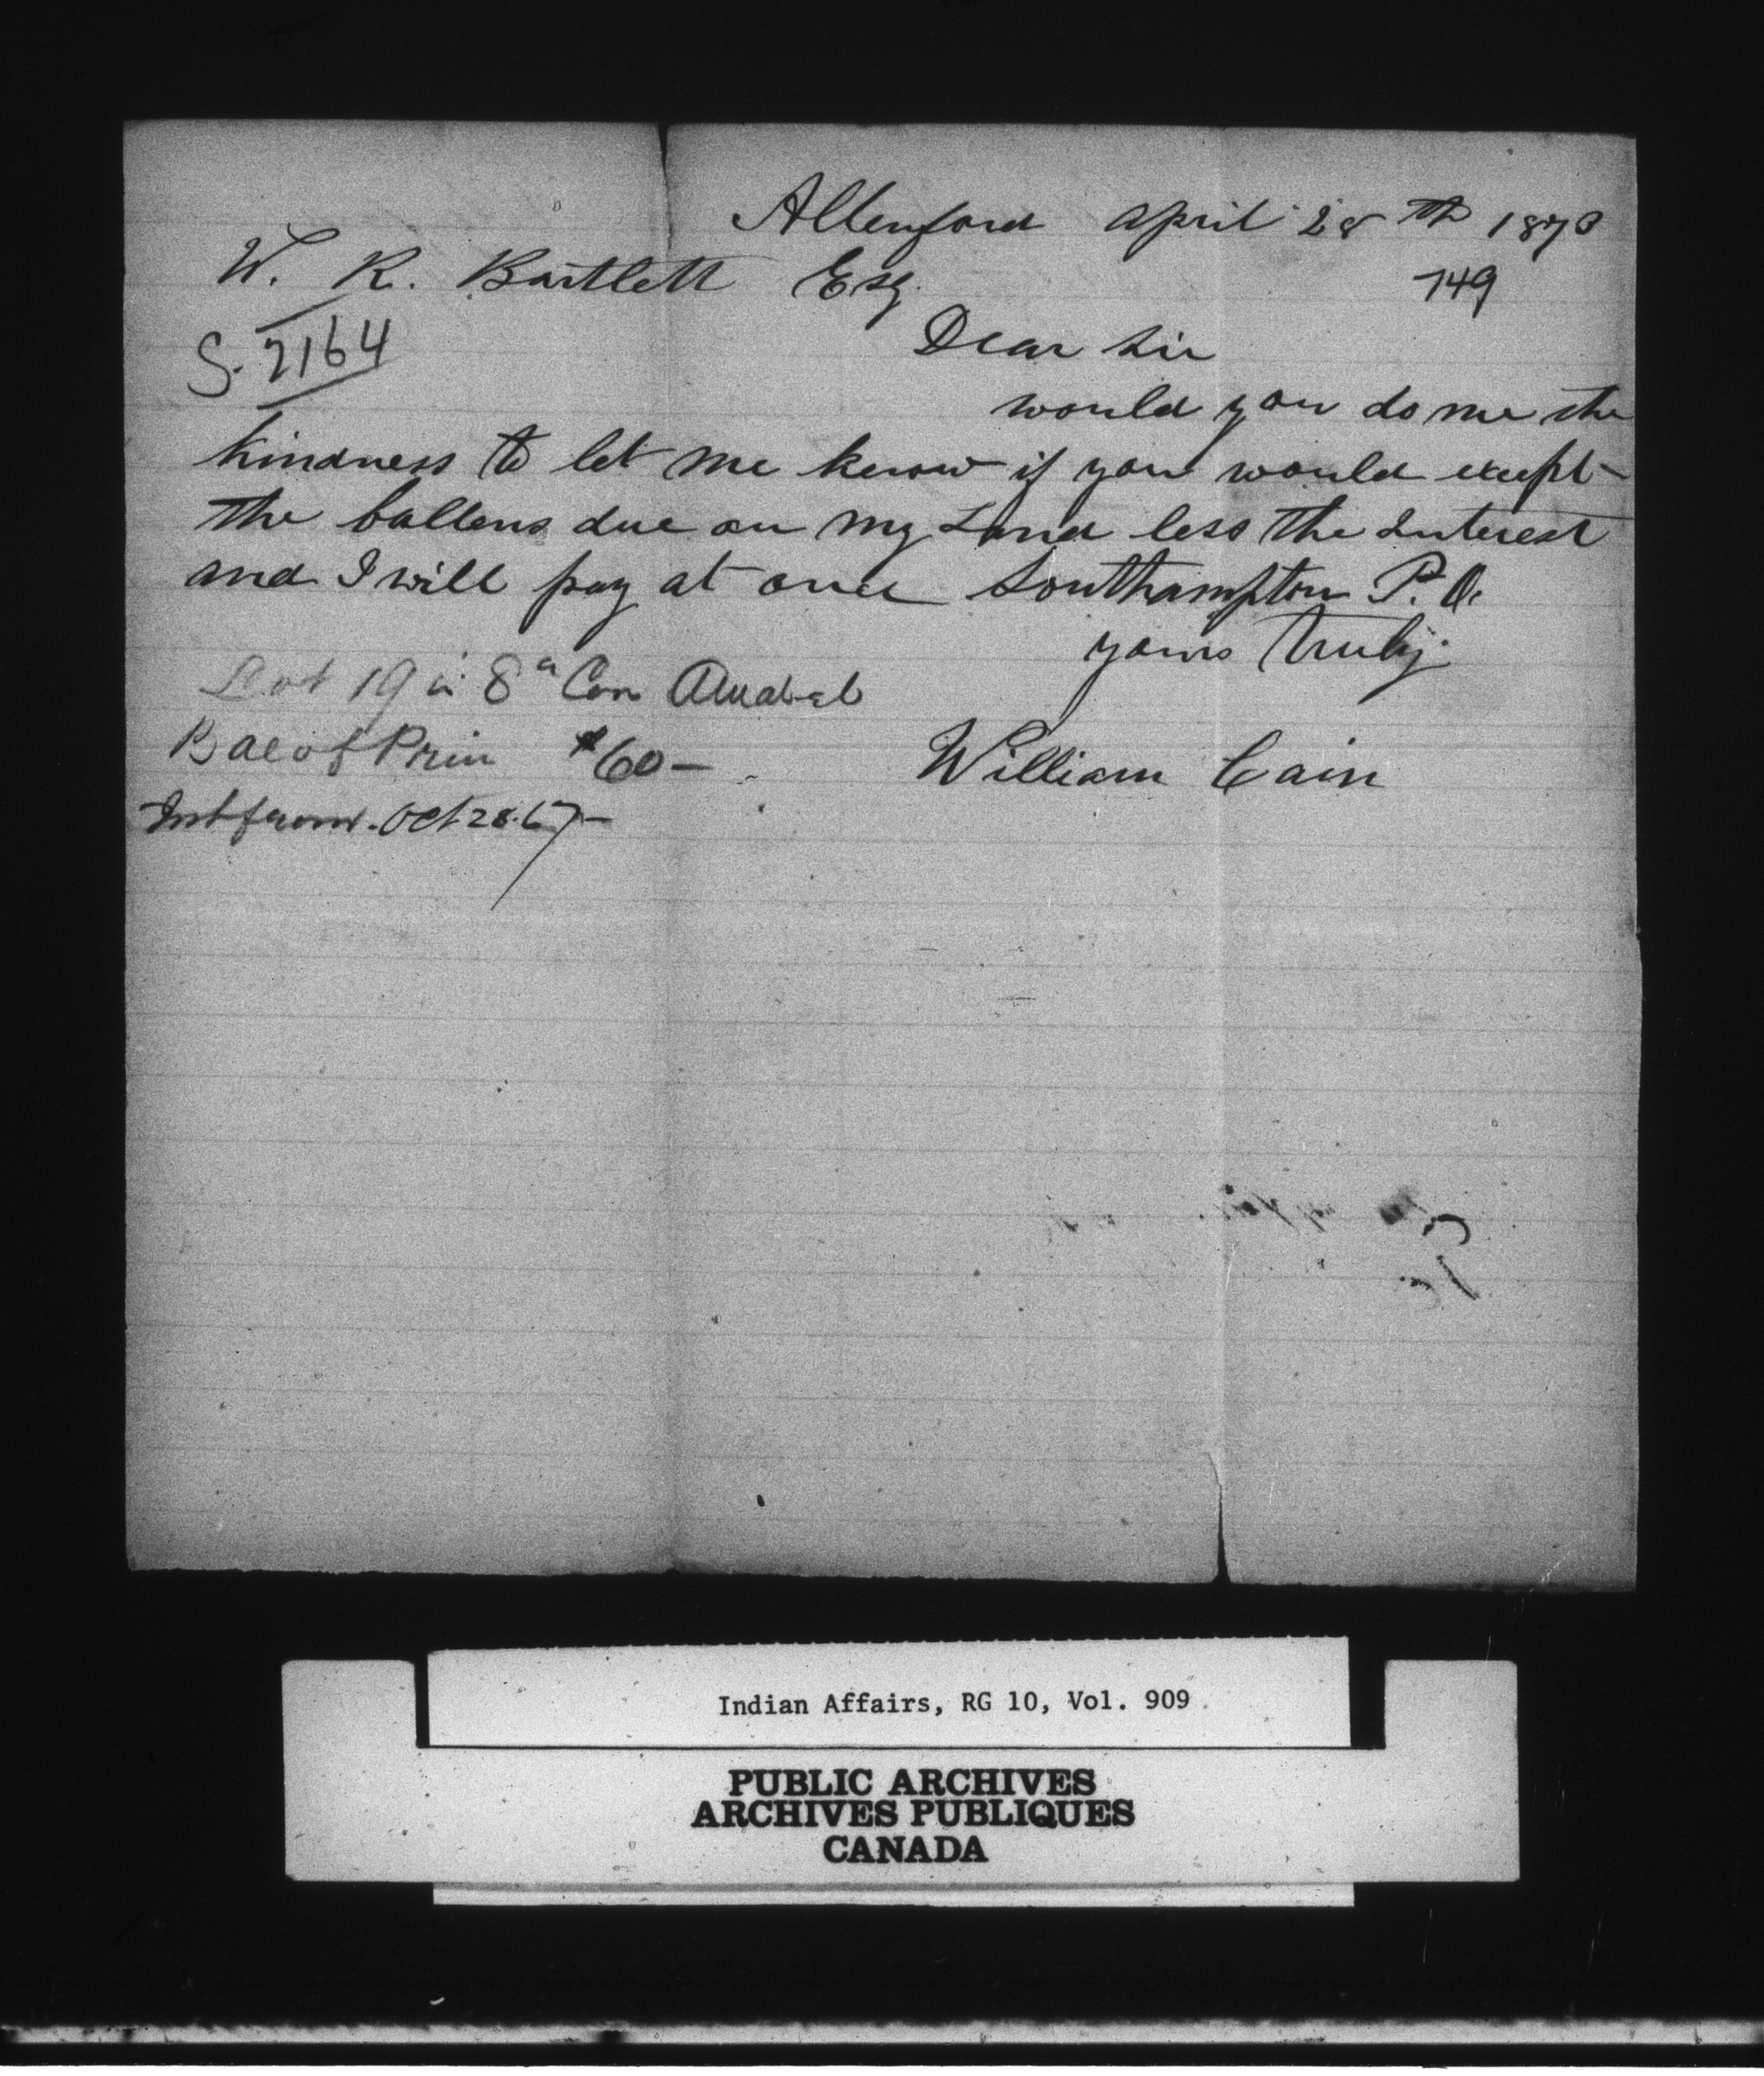 Allenford April 28 th 1873
W. R. Bartlett Esq.
749
S. 2164
Dear Sir
would you do me the
kindness to let me know if you would except
the ballens due on my Land less the Interest
and I will pay at once Southampton P. O.
yours truly
Lot 19 in 8th Con Amabel
Bal of Prin $60 –
William Cain
Int from. Oct 28. 67 –
Indian Affairs, RG 10, Vol. 909
PUBLIC ARCHIVES
ARCHIVES PUBLIQUES
CANADA